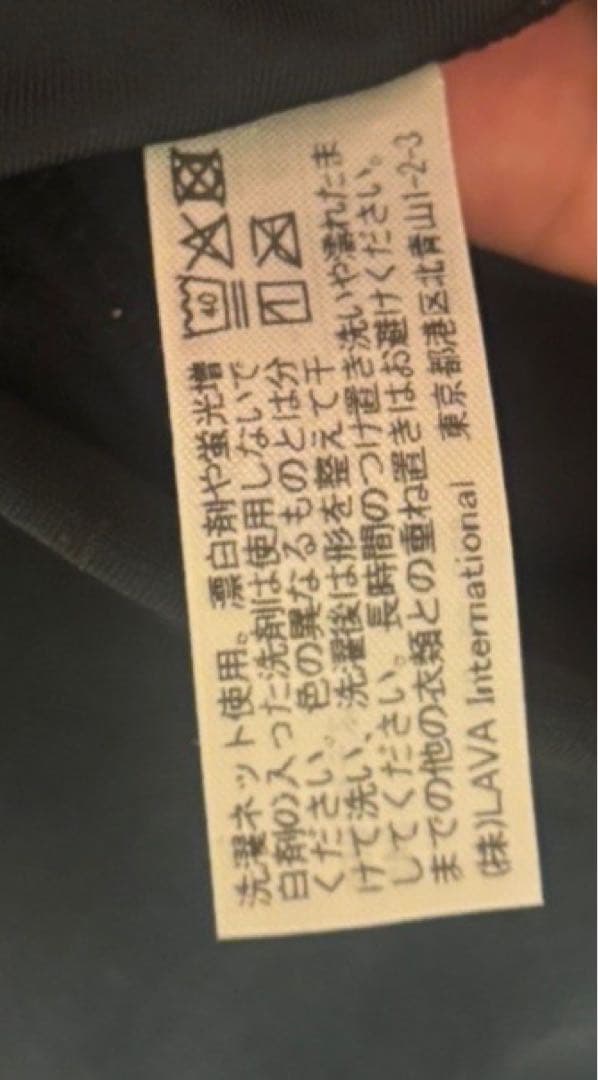 40
洗濯ネット使用。漂白剤や蛍光増
白剤の入った洗剤は使用しないで
ください。色の異なるものとは分
けて洗い、洗濯後は形を整えて干
してください。長時間のつけ置き洗いや濡れたま
までの他の衣類との重ね置きはお避けください。
(株)LAVA International 東京都港区北青山1-2-3